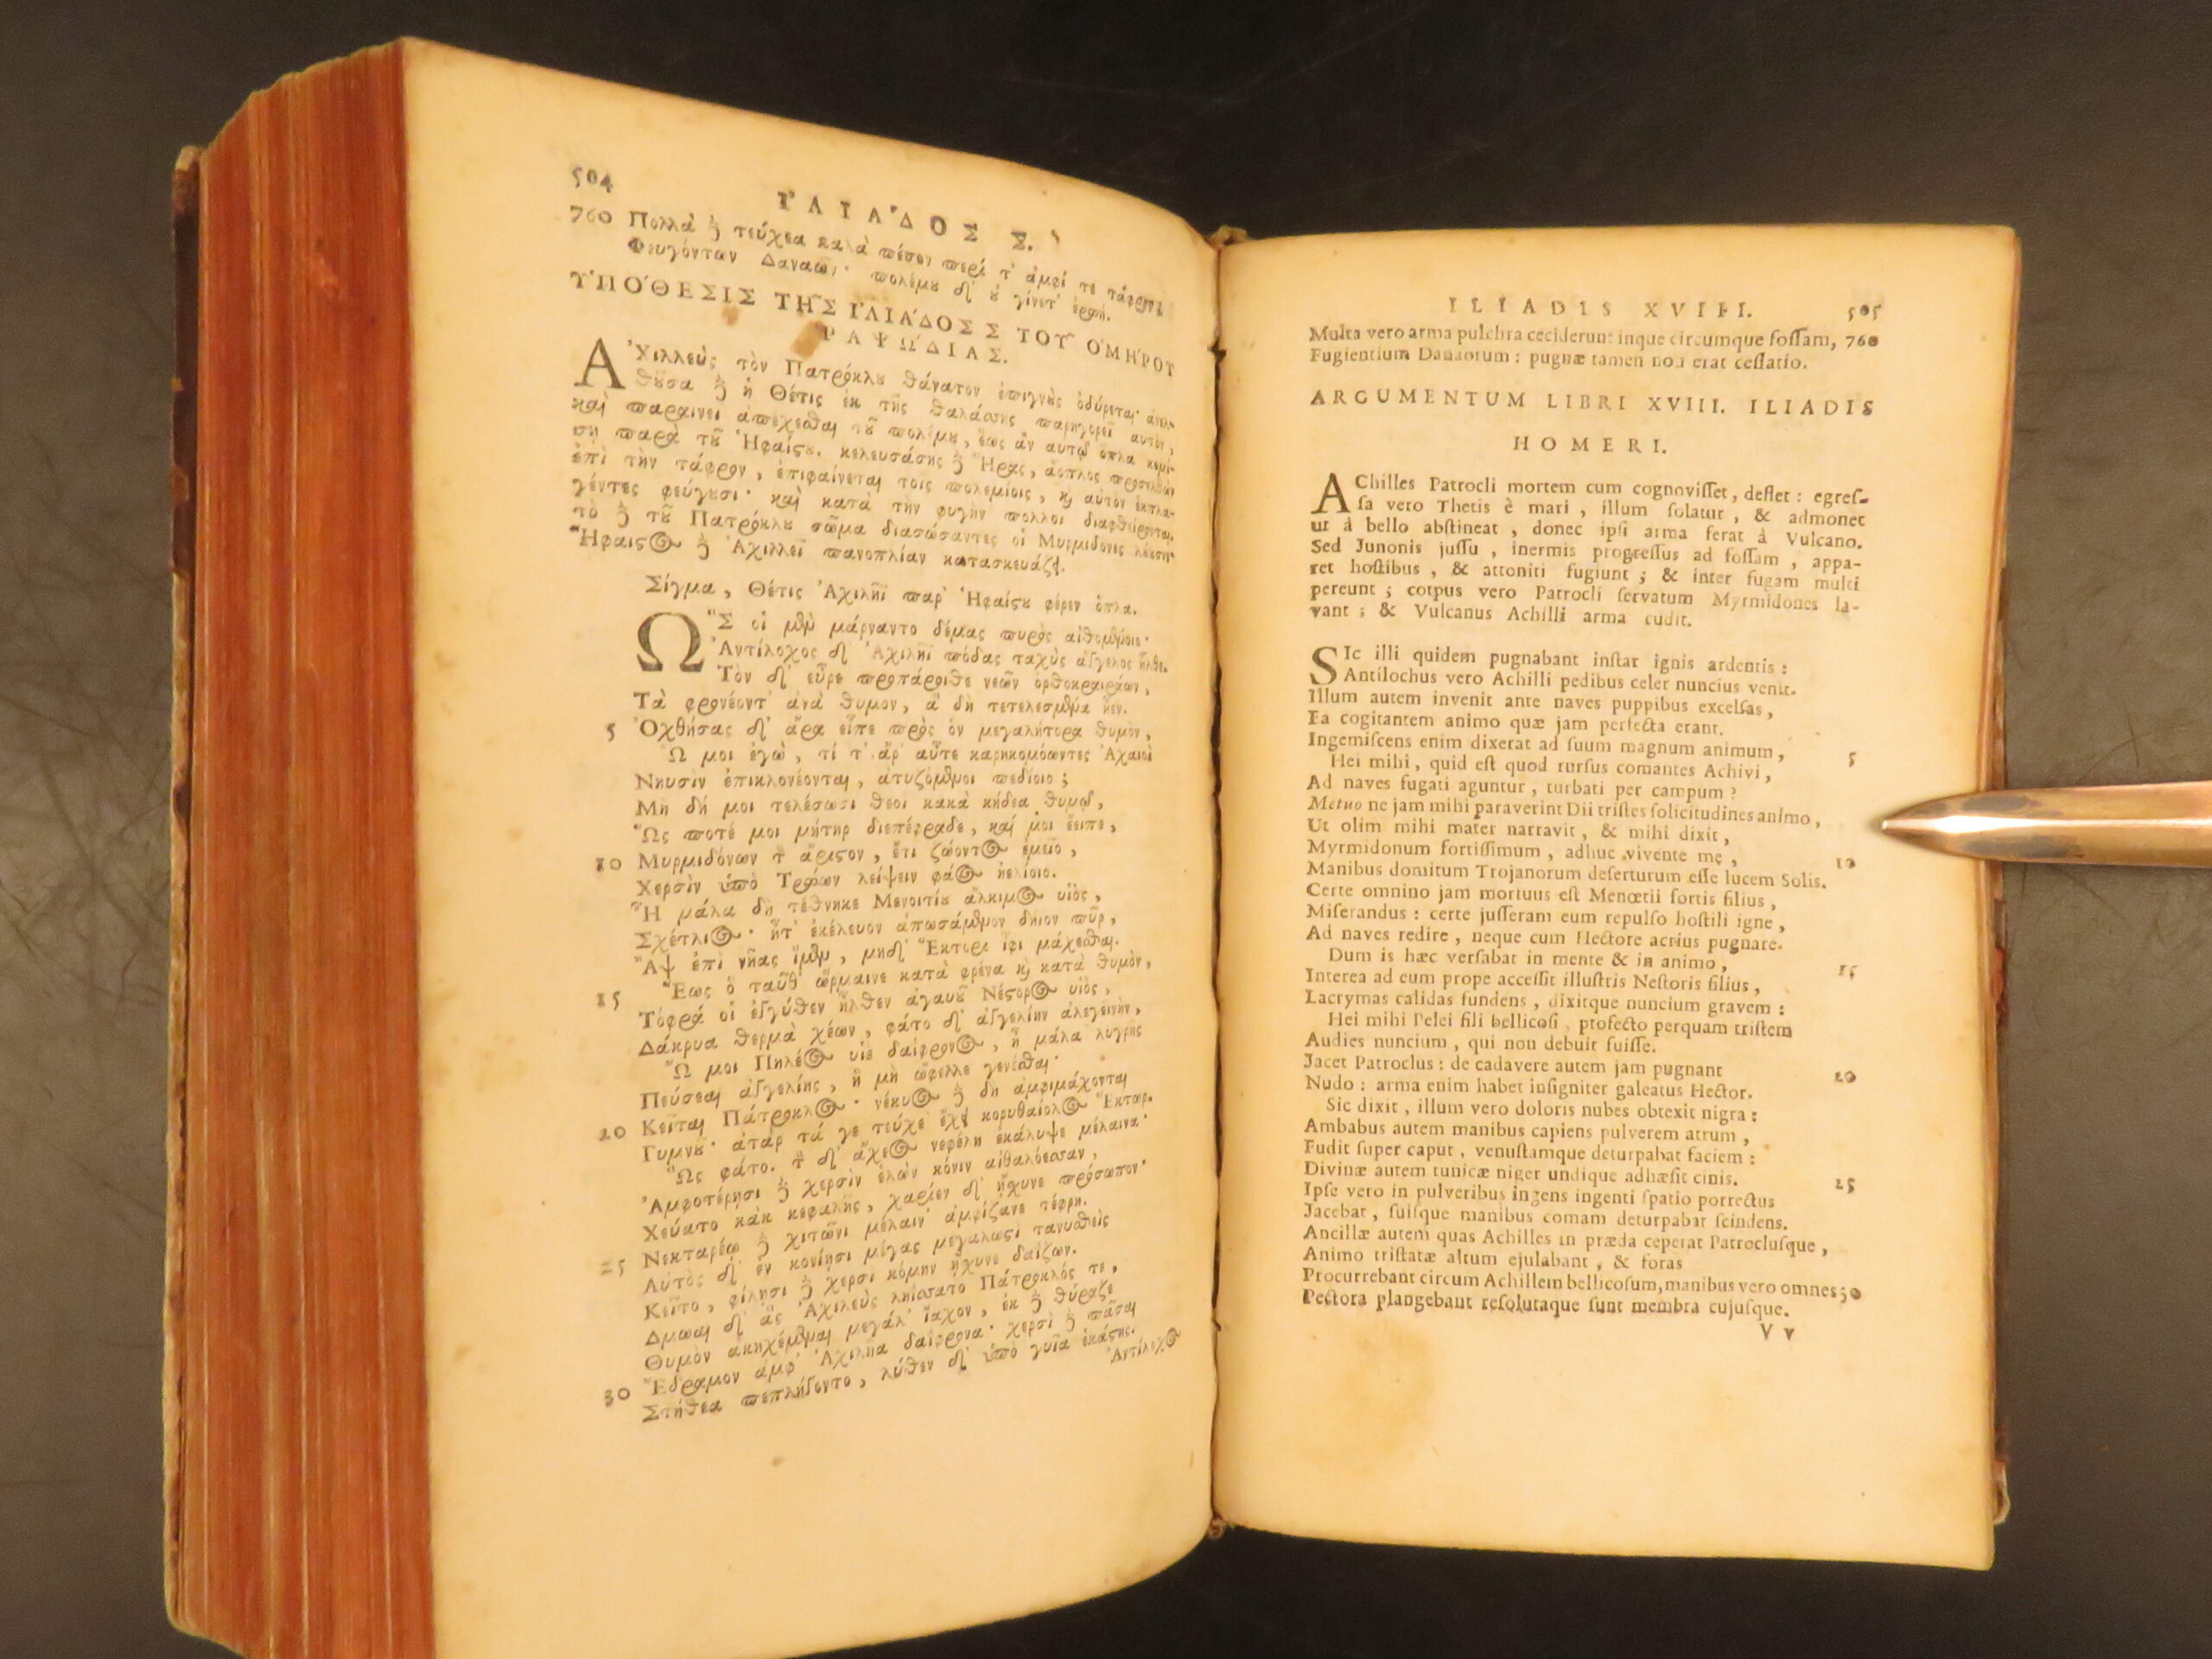 504
ἸΛΙΆΔΟΣ Σ.
760 Πολλὰ δὲ τεύχεα καλὰ πέσον περί τ' ἀμφί τε τάφρον
Φευγόντων Δαναῶν· πολέμου δ' οὐ γίνετ' ἐρωή.
ὙΠΌΘΕΣΙΣ ΤΗ͂Σ ἸΛΙΆΔΟΣ Σ ΤΟΥ͂ ὉΜΉΡΟΥ
ῬΑΨΩΔΊΑΣ.
ἈΧιλλεὺς τὸν Πατρόκλου θάνατον ἐπιγνὰς ὀδύρεται· ἀνελ-
θοῦσα δὲ ἡ Θέτις ἐκ τῆς θαλάσσης παρηγορεῖ αὐτὸν,
καὶ παραινει ἀπέχεσθαι τοῦ πολέμου, ἕως ἂν αὐτῷ ὅπλα κομί-
ση παρὰ τοῦ Ἡφαίστου. κελευσάσης δὲ Ἥρας, ἄοπλος προσελθὼν
ἐπὶ τὴν τάφρον, ἐπιφαίνεται τοις πολεμίοις, καὶ αὐτὸν ἐκπλα-
γέντες φεύγουσι· καὶ κατὰ τὴν φυγὴν πολλοι διαφθείρονται.
τὸ δὲ τοῦ Πατρόκλου σῶμα διασώσαντες οἱ Μυρμιδόνες λούουσιν·
Ἥφαιστος δὲ Ἀχιλλεῖ πανοπλίαν κατασκευάζει.
Σίγμα, Θέτις Ἀχιλῆϊ παρ' Ἡφαίστου φέρεν ὅπλα.
ὯΣ οἱ μὲν μάρναντο δέμας πυρὸς αἰθομένοιο·
Ἀντίλοχος δ' Ἀχιλῆϊ πόδας ταχὺς ἄγγελος ἦλθε.
Τὸν δ' εὗρε προπάροιθε νεῶν ὀρθοκραιράων,
Τὰ φρονέοντ' ἀνὰ θυμον, ἃ δὴ τετελεσμένα ἦεν.
5 Ὀχθήσας δ' ἄρα εἶπε πρὸς ὃν μεγαλήτορα θυμὸν,
Ὤ μοι ἐγὼ, τί τ' ἄρ' αὖτε καρηκομόωντες Ἀχαιοὶ
Νηυσὶν ἐπικλονέονται, ἀτυζόμενοι πεδίοιο;
Μὴ δή μοι τελέσωσι θεοὶ κακὰ κήδεα θυμῷ,
Ὥς ποτέ μοι μήτηρ διεπέφραδε, καί μοι ἔειπε,
10 Μυρμιδόνων τὸν ἄριστον, ἔτι ζώοντος ἐμεῖο,
Χερσὶν ὑπὸ Τρώων λείψειν φάος ἠελίοιο.
Ἦ μάλα δὴ τέθνηκε Μενοιτίου ἄλκιμος υἱὸς,
Σχέτλιος· ἦτ' ἐκέλευον ἀπωσάμενον δήιον πῦρ,
Ἂψ ἐπὶ νῆας ἴμεν, μηδ' Ἕκτορι ἶφι μάχεσθαι.
15 Ἕως ὁ ταῦθ' ὥρμαινε κατὰ φρένα καὶ κατὰ θυμὸν,
Τόφρά οἱ ἐγγύθεν ἦλθεν ἀγαυοῦ Νέστορος υἱὸς,
Δάκρυα θερμὰ χέων, φάτο δ' ἀγγελίην ἀλεγεινὴν,
Ὤ μοι Πηλέος υἱὲ δαΐφρονος, ἦ μάλα λυγρῆς
Πεύσεαι ἀγγελίης, ἣ μὴ ὤφελλε γενέσθαι·
20 Κεῖται Πάτροκλος· νέκυος δὲ δὴ ἀμφιμάχονται
Γυμνοῦ· ἀτὰρ τά γε τεύχε' ἔχει κορυθαίολος Ἕκτωρ.
Ὣς φάτο. τὸν δ' ἄχεος νεφέλη ἐκάλυψε μέλαινα·
Ἀμφοτέρῃσι δὲ χερσὶν ἑλὼν κόνιν αἰθαλόεσσαν,
Χεύατο κὰκ κεφαλῆς, χαρίεν δ' ᾔχυνε πρόσωπον·
25 Νεκταρέῳ δὲ χιτῶνι μέλαιν' ἀμφίζανε τέφρη.
Αὐτὸς δ' ἐν κονίῃσι μέγας μεγαλωστὶ τανυσθεὶς
Κεῖτο, φίλῃσι δὲ χερσὶ κόμην ᾔχυνε δαΐζων.
Δμωαὶ δ' ἃς Ἀχιλεὺς ληίσσατο Πάτροκλός τε,
Θυμὸν ἀκηχέμεναι μεγάλ' ἴαχον, ἐκ δὲ θύραζε
30 Ἔδραμον ἀμφ' Ἀχιλῆα δαίφρονα· χερσὶ δὲ πᾶσαι
Στήθεα πεπλήγοντο, λύθεν δ' ὑπὸ γυῖα ἑκάστης.
Ἀντίλοχος
ILIADIS XVIII. 505
Multa vero arma pulchra ceciderunt inque circumque fossam, 760
Fugientium Danaorum: pugnæ tamen non erat cessatio.
ARGUMENTUM LIBRI XVIII. ILIADIS
HOMERI.
AChilles Patrocli mortem cum cognovisset, deflet: egres-
sa vero Thetis è mari, illum solatur, & admonet
ut à bello abstineat, donec ipsi arma ferat à Vulcano.
Sed Junonis jussu, inermis progressus ad fossam, appa-
ret hostibus, & attoniti fugiunt; & inter fugam multi
pereunt; corpus vero Patrocli servatum Myrmidones la-
vant; & Vulcanus Achilli arma cudit.
SIc illi quidem pugnabant instar ignis ardentis:
Antilochus vero Achilli pedibus celer nuncius venit.
Illum autem invenit ante naves puppibus excelsas,
Ea cogitantem animo quæ jam perfecta erant.
Ingemiscens enim dixerat ad suum magnum animum, 5
Hei mihi, quid est quod rursus comantes Achivi,
Ad naves fugati aguntur, turbati per campum?
Metuo ne jam mihi paraverint Dii tristes solicitudines animo,
Ut olim mihi mater narravit, & mihi dixit,
Myrmidonum fortissimum, adhuc vivente me, 10
Manibus domitum Trojanorum deserturum esse lucem Solis.
Certe omnino jam mortuus est Menœtii fortis filius,
Miserandus: certe jusseram eum repulso hostili igne,
Ad naves redire, neque cum Hectore acrius pugnare.
Dum is hæc versabat in mente & in animo, 15
Interea ad eum prope accessit illustris Nestoris filius,
Lacrymas calidas fundens, dixitque nuncium gravem:
Hei mihi Pelei fili bellicosi, profecto perquam tristem
Audies nuncium, qui non debuit fuisse.
Jacet Patroclus: de cadavere autem jam pugnant 20
Nudo: arma enim habet insigniter galeatus Hector.
Sic dixit, illum vero doloris nubes obtexit nigra:
Ambabus autem manibus capiens pulverem atrum,
Fudit super caput, venustamque deturpabat faciem:
Divinæ autem tunicæ niger undique adhæsit cinis. 25
Ipse vero in pulveribus ingens ingenti spatio porrectus
Jacebat, suisque manibus comam deturpabat scindens.
Ancillæ autem quas Achilles in præda ceperat Patroclusque,
Animo tristatæ altum ejulabant, & foras
Procurrebant circum Achillem bellicosum, manibus vero omnes 30
Pectora plangebant resolutaque sunt membra cujusque.
V v